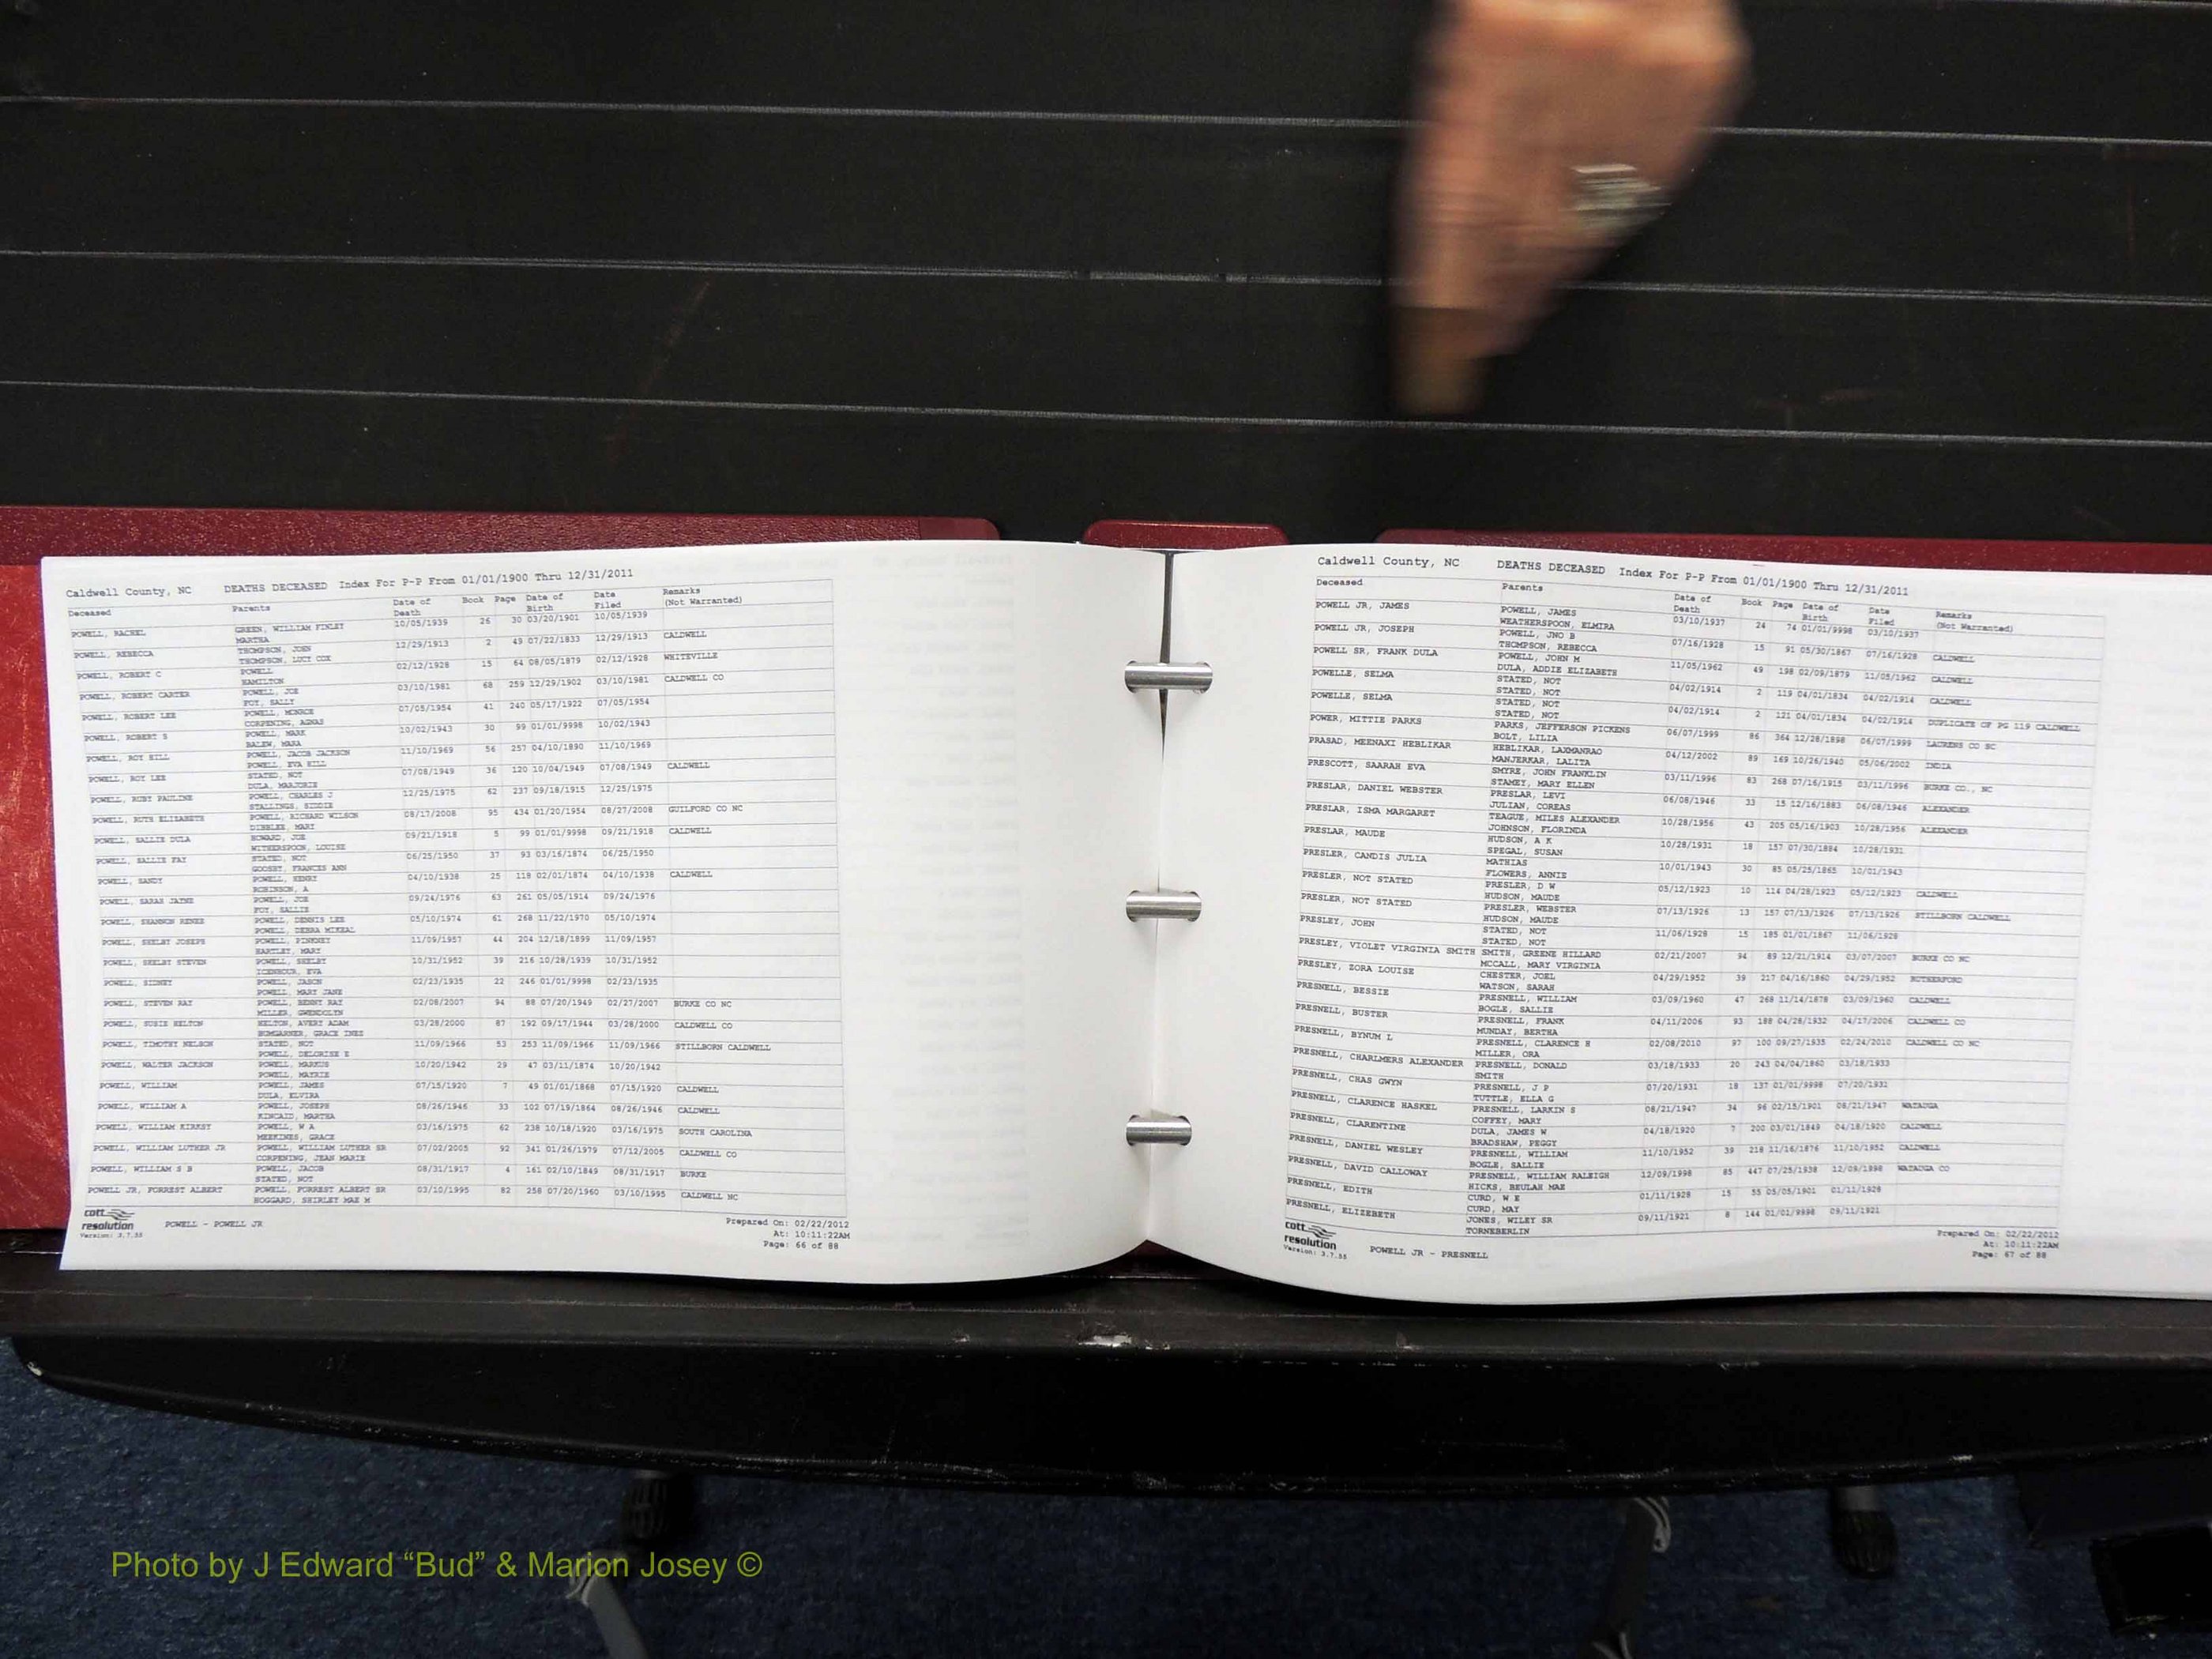 Caldwell County, NC DEATHS DECEASED Index For P-P From 01/01/1900 Thru 12/31/2011
Deceased Parents Date of Death Book Page Date of Birth Date Filed Remarks (Not Warranted)
POWELL, RACHEL GREEN, WILLIAM FINLEY 10/05/1939 26 30 03/20/1901 10/05/1939
MARTHA
POWELL, REBECCA THOMPSON, JOHN 12/29/1913 2 49 07/22/1833 12/29/1913 CALDWELL
THOMPSON, LUCY COX
POWELL, ROBERT C POWELL 02/12/1928 15 64 08/05/1879 02/12/1928 WHITEVILLE
HAMILTON
POWELL, ROBERT CARTER POWELL, JOE 03/10/1981 68 259 12/29/1902 03/10/1981 CALDWELL CO
FOY, SALLY
POWELL, ROBERT LEE POWELL, MONROE 07/05/1954 41 240 05/17/1922 07/05/1954
CORPENING, AGNAS
POWELL, ROBERT S POWELL, MARK 10/02/1943 30 99 01/01/9998 10/02/1943
BALEW, MARA
POWELL, ROY HILL POWELL, JACOB JACKSON 11/10/1969 56 257 04/10/1890 11/10/1969
POWELL, EVA HILL
POWELL, ROY LEE STATED, NOT 07/08/1949 36 120 10/04/1949 07/08/1949 CALDWELL
DULA, MARJORIE
POWELL, RUBY PAULINE POWELL, CHARLES J 12/25/1975 62 237 09/18/1915 12/25/1975
STALLINGS, SIDDIE
POWELL, RUTH ELIZABETH POWELL, RICHARD WILSON 08/17/2008 95 434 01/20/1954 08/27/2008 GUILFORD CO NC
DIBBLEE, MARY
POWELL, SALLIE DULA HOWARD, JOE 09/21/1918 5 99 01/01/9998 09/21/1918 CALDWELL
WITHERSPOON, LOUISE
POWELL, SALLIE FAY STATED, NOT 06/25/1950 37 93 03/16/1874 06/25/1950
GOOSBY, FRANCES ANN
POWELL, SANDY POWELL, HENRY 04/10/1938 25 118 02/01/1874 04/10/1938 CALDWELL
ROBINSON, A
POWELL, SARAH JAYNE POWELL, JOE 09/24/1976 63 261 05/05/1914 09/24/1976
FOY, SALLIE
POWELL, SHANNON RENEE POWELL, DENNIS LEE 05/10/1974 61 268 11/22/1970 05/10/1974
POWELL, DEBRA MIKEAL
POWELL, SHELBY JOSEPH POWELL, PINKNEY 11/09/1957 44 204 12/18/1899 11/09/1957
HARTLEY, MARY
POWELL, SHELBY STEVEN POWELL, SHELBY 10/31/1952 39 216 10/28/1939 10/31/1952
ICENHOUR, EVA
POWELL, SIDNEY POWELL, JASON 02/23/1935 22 246 01/01/9998 02/23/1935
POWELL, MARY JANE
POWELL, STEVEN RAY POWELL, BENNY RAY 02/08/2007 94 88 07/20/1949 02/27/2007 BURKE CO NC
MILLER, GWENDOLYN
POWELL, SUSIE HELTON HELTON, AVERY ADAM 03/28/2000 87 192 09/17/1944 03/28/2000 CALDWELL CO
BUMGARNER, GRACE INEZ
POWELL, TIMOTHY NELSON STATED, NOT 11/09/1966 53 253 11/09/1966 11/09/1966 STILLBORN CALDWELL
POWELL, DELORISE E
POWELL, WALTER JACKSON POWELL, MARKUS 10/20/1942 29 47 03/11/1874 10/20/1942
POWELL, MAYRIE
POWELL, WILLIAM POWELL, JAMES 07/15/1920 7 49 01/01/1868 07/15/1920 CALDWELL
DULA, ELVIRA
POWELL, WILLIAM A POWELL, JOSEPH 08/26/1946 33 102 07/19/1864 08/26/1946 CALDWELL
KINCAID, MARTHA
POWELL, WILLIAM KIRKSY POWELL, W A 03/16/1975 62 238 10/18/1920 03/16/1975 SOUTH CAROLINA
MEEKINES, GRACE
POWELL, WILLIAM LUTHER JR POWELL, WILLIAM LUTHER SR 07/02/2005 92 341 01/26/1979 07/12/2005 CALDWELL CO
CORPENING, JEAN MARIE
POWELL, WILLIAM S B POWELL, JACOB 08/31/1917 4 161 02/10/1849 08/31/1917 BURKE
STATED, NOT
POWELL JR, FORREST ALBERT POWELL, FORREST ALBERT SR 03/10/1995 82 258 07/20/1960 03/10/1995 CALDWELL NC
HOGGARD, SHIRLEY MAE M
cott resolution Version: 3.7.55
POWELL - POWELL JR
Prepared On: 02/22/2012
At: 10:11:22AM
Page: 66 of 88
Caldwell County, NC DEATHS DECEASED Index For P-P From 01/01/1900 Thru 12/31/2011
Deceased Parents Date of Death Book Page Date of Birth Date Filed Remarks (Not Warranted)
POWELL JR, JAMES POWELL, JAMES 03/10/1937 24 74 01/01/9998 03/10/1937
WEATHERSPOON, ELMIRA
POWELL JR, JOSEPH POWELL, JNO B 07/16/1928 15 91 05/30/1867 07/16/1928 CALDWELL
THOMPSON, REBECCA
POWELL SR, FRANK DULA POWELL, JOHN M 11/05/1962 49 198 02/09/1879 11/05/1962 CALDWELL
DULA, ADDIE ELIZABETH
POWELLE, SELMA STATED, NOT 04/02/1914 2 119 04/01/1834 04/02/1914 CALDWELL
STATED, NOT
POWELLE, SELMA STATED, NOT 04/02/1914 2 121 04/01/1834 04/02/1914 DUPLICATE OF PG 119 CALDWELL
STATED, NOT
POWER, MITTIE PARKS PARKS, JEFFERSON PICKENS 06/07/1999 86 364 12/28/1898 06/07/1999 LAURENS CO SC
BOLT, LILIA
PRASAD, MEENAXI HEBLIKAR HEBLIKAR, LAXMANRAO 04/12/2002 89 169 10/26/1940 05/06/2002 INDIA
MANJERKAR, LALITA
PRESCOTT, SAARAH EVA SMYRE, JOHN FRANKLIN 03/11/1996 83 268 07/16/1915 03/11/1996 BURKE CO., NC
STAMEY, MARY ELLEN
PRESLAR, DANIEL WEBSTER PRESLAR, LEVI 06/08/1946 33 15 12/16/1883 06/08/1946 ALEXANDER
JULIAN, COREAS
PRESLAR, ISMA MARGARET TEAGUE, MILES ALEXANDER 10/28/1956 43 205 05/16/1903 10/28/1956 ALEXANDER
JOHNSON, FLORINDA
PRESLAR, MAUDE HUDSON, A K 10/28/1931 18 157 07/30/1884 10/28/1931
SPEGAL, SUSAN
PRESLER, CANDIS JULIA MATHIAS 10/01/1943 30 85 05/25/1865 10/01/1943
FLOWERS, ANNIE
PRESLER, NOT STATED PRESLER, D W 05/12/1923 10 114 04/28/1923 05/12/1923 CALDWELL
HUDSON, MAUDE
PRESLER, NOT STATED PRESLER, WEBSTER 07/13/1926 13 157 07/13/1926 07/13/1926 STILLBORN CALDWELL
HUDSON, MAUDE
PRESLEY, JOHN STATED, NOT 11/06/1928 15 185 01/01/1867 11/06/1928
STATED, NOT
PRESLEY, VIOLET VIRGINIA SMITH SMITH, GREENE HILLARD 02/21/2007 94 89 12/21/1914 03/07/2007 BURKE CO NC
MCCALL, MARY VIRGINIA
PRESLEY, ZORA LOUISE CHESTER, JOEL 04/29/1952 39 217 04/16/1860 04/29/1952 RUTHERFORD
WATSON, SARAH
PRESNELL, BESSIE PRESNELL, WILLIAM 03/09/1960 47 268 11/14/1878 03/09/1960 CALDWELL
BOGLE, SALLIE
PRESNELL, BUSTER PRESNELL, FRANK 04/11/2006 93 188 04/28/1932 04/17/2006 CALDWELL CO
MUNDAY, BERTHA
PRESNELL, BYNUM L PRESNELL, CLARENCE H 02/08/2010 97 100 09/27/1935 02/24/2010 CALDWELL CO NC
MILLER, ORA
PRESNELL, CHARLMERS ALEXANDER PRESNELL, DONALD 03/18/1933 20 243 04/04/1860 03/18/1933
SMITH
PRESNELL, CHAS GWYN PRESNELL, J P 07/20/1931 18 137 01/01/9998 07/20/1931
TUTTLE, ELLA G
PRESNELL, CLARENCE HASKEL PRESNELL, LARKIN S 08/21/1947 34 96 02/15/1901 08/21/1947 WATAUGA
COFFEY, MARY
PRESNELL, CLARENTINE DULA, JAMES W 04/18/1920 7 200 03/01/1849 04/18/1920 CALDWELL
BRADSHAW, PEGGY
PRESNELL, DANIEL WESLEY PRESNELL, WILLIAM 11/10/1952 39 218 11/16/1876 11/10/1952 CALDWELL
BOGLE, SALLIE
PRESNELL, DAVID CALLOWAY PRESNELL, WILLIAM RALEIGH 12/09/1998 85 447 07/25/1938 12/09/1998 WATAUGA CO
HICKS, BEULAH MAE
PRESNELL, EDITH CURD, W E 01/11/1928 15 55 05/05/1901 01/11/1928
CURD, MAY
PRESNELL, ELIZEBETH JONES, WILEY SR 09/11/1921 8 144 01/01/9998 09/11/1921
TORNEBERLIN
cott resolution Version: 3.7.55
POWELL JR - PRESNELL
Prepared On: 02/22/2012
At: 10:11:22AM
Page: 67 of 88
Photo by J Edward “Bud” & Marion Josey ©